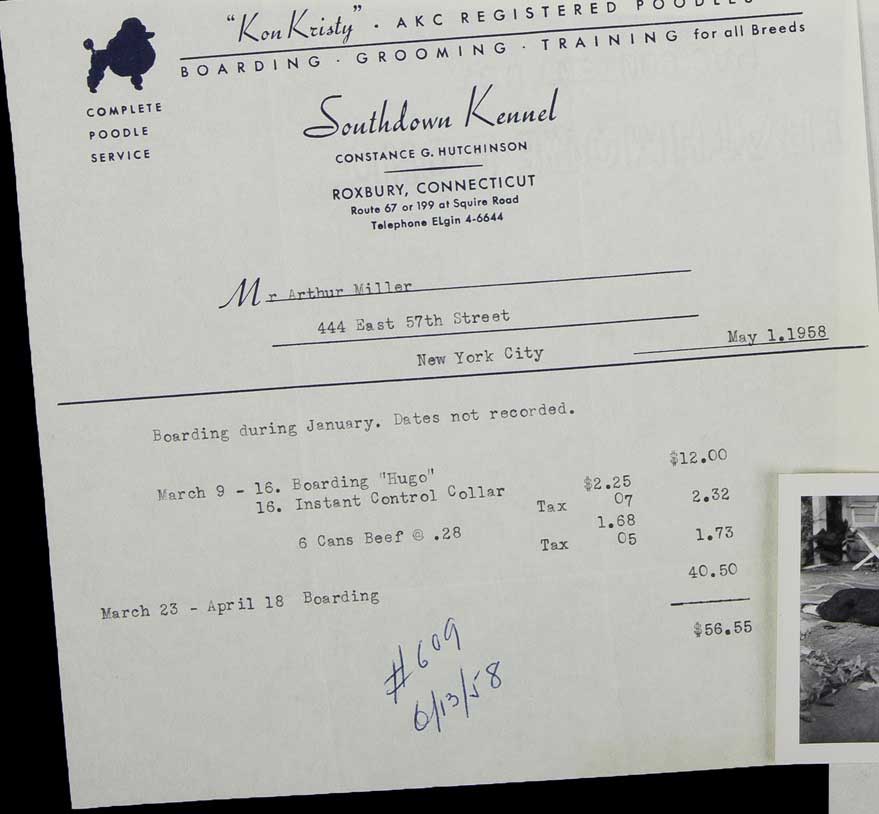 "Kon Kristy" · AKC REGISTERED POODLES
BOARDING · GROOMING · TRAINING for all Breeds
COMPLETE
POODLE
SERVICE
Southdown Kennel
CONSTANCE G. HUTCHINSON
ROXBURY, CONNECTICUT
Route 67 or 199 at Squire Road
Telephone ELgin 4-6644
Mr Arthur Miller
444 East 57th Street
New York City
May 1.1958
Boarding during January. Dates not recorded.
March 9 - 16. Boarding "Hugo" $12.00
16. Instant Control Collar $2.25
Tax 07 2.32
6 Cans Beef @ .28 1.68
Tax 05 1.73
March 23 - April 18 Boarding 40.50
$56.55
#609
6/13/58